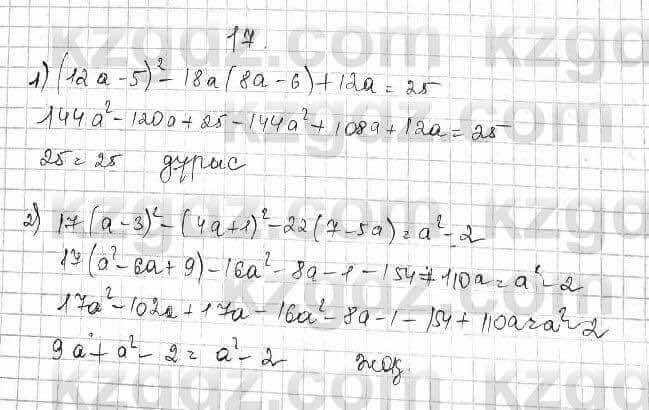 17.
1) (12a - 5)² - 18a(8a - 6) + 12a = 25
144a² - 120a + 25 - 144a² + 108a + 12a = 25
25 = 25 дурыс
2) 17(a - 3)² - (4a + 1)² - 22(7 - 5a) = a² - 2
17(a² - 6a + 9) - 16a² - 8a - 1 - 154 + 110a = a² - 2
17a² - 102a + 17a - 16a² - 8a - 1 - 154 + 110a = a² - 2
9a + a² - 2 = a² - 2